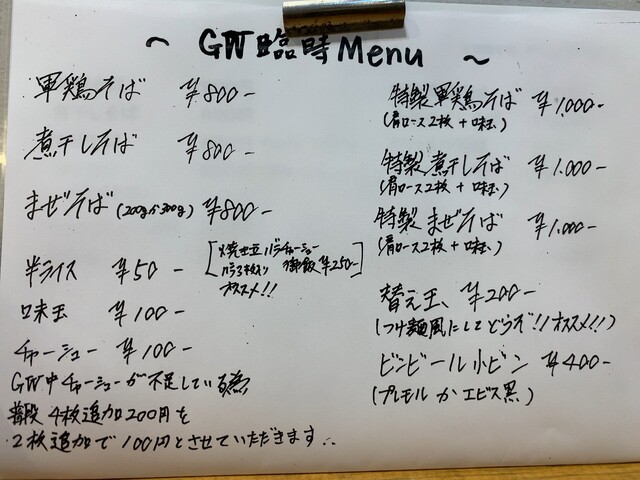 ~ GW臨時Menu ~
軍鶏そば ¥800-
煮干しそば ¥800-
まぜそば(200gか300g) ¥800-
半ライス ¥50-
[焼豚バラチャーシュー
バラ3枚入り 御飯 ¥250-]
オススメ!!
味玉 ¥100-
チャーシュー ¥100-
GW中チャーシューが不足している為
普段4枚追加200円を
2枚追加で100円とさせていただきます..
特製軍鶏そば ¥1,000-
(肩ロース2枚+味玉)
特製煮干しそば ¥1.000-
(肩ロース2枚+味玉)
特製まぜそば ¥1,000-
(肩ロース2枚+味玉)
替え玉、¥200-
(つけ麺風にしてどうぞ!!オススメ!!)
ビンビール小ビン ¥400-
(プレモルかエビス黒)